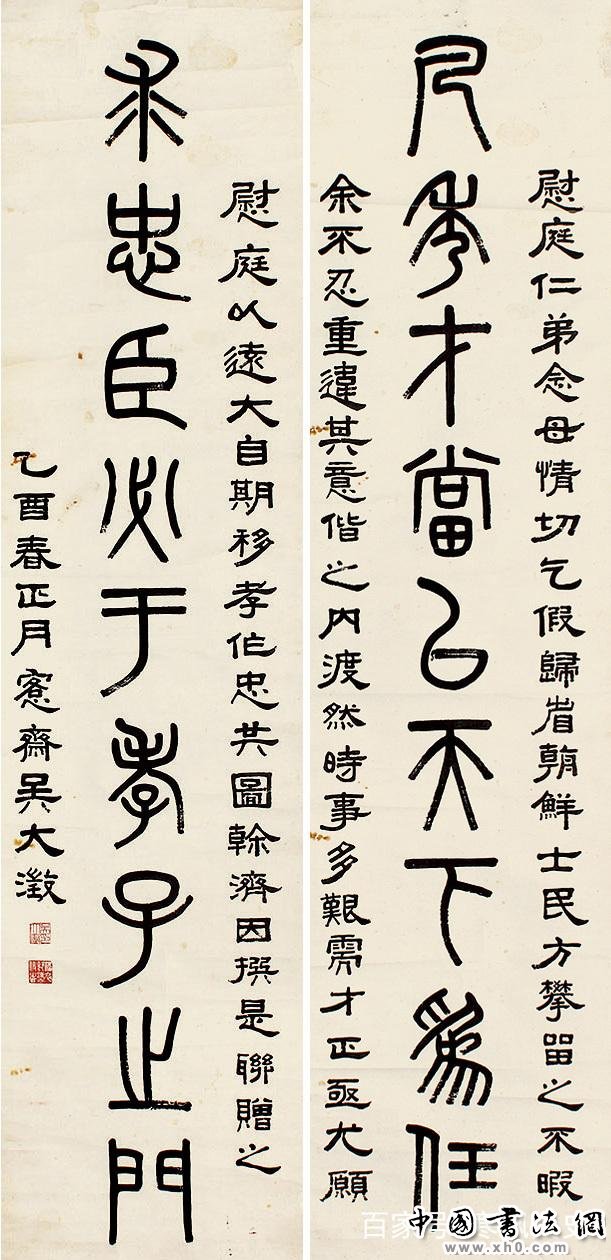 慰庭仁弟念母情切乞假歸省朝鮮士民方攀留之不暇
凡秀才當以天下為任
余不忍重違其意偕之內渡然時事多艱需才正亟尤願
慰庭以遠大自期移孝作忠共圖榦濟因撰是聯贈之
求忠臣必于孝子之門
乙酉春正月愙齋吳大澂
百家号
中國書法網
www.xh0.com